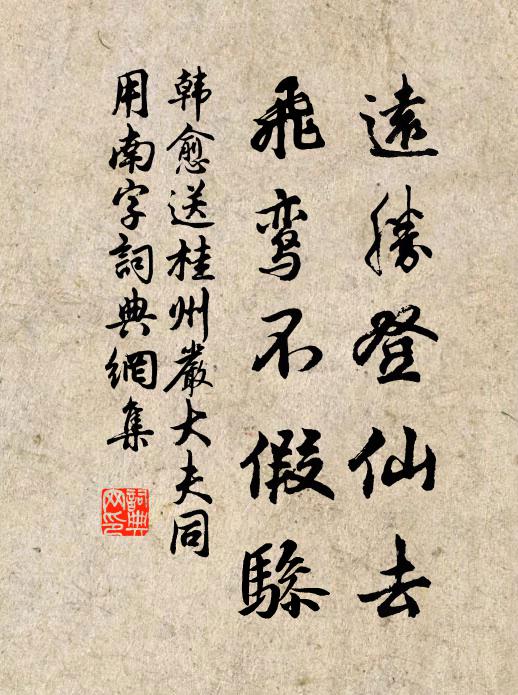 遠勝登仙去
飛鸾不假驂
韩愈送桂州嚴大夫同
用南字詞典網集
詞典
网印